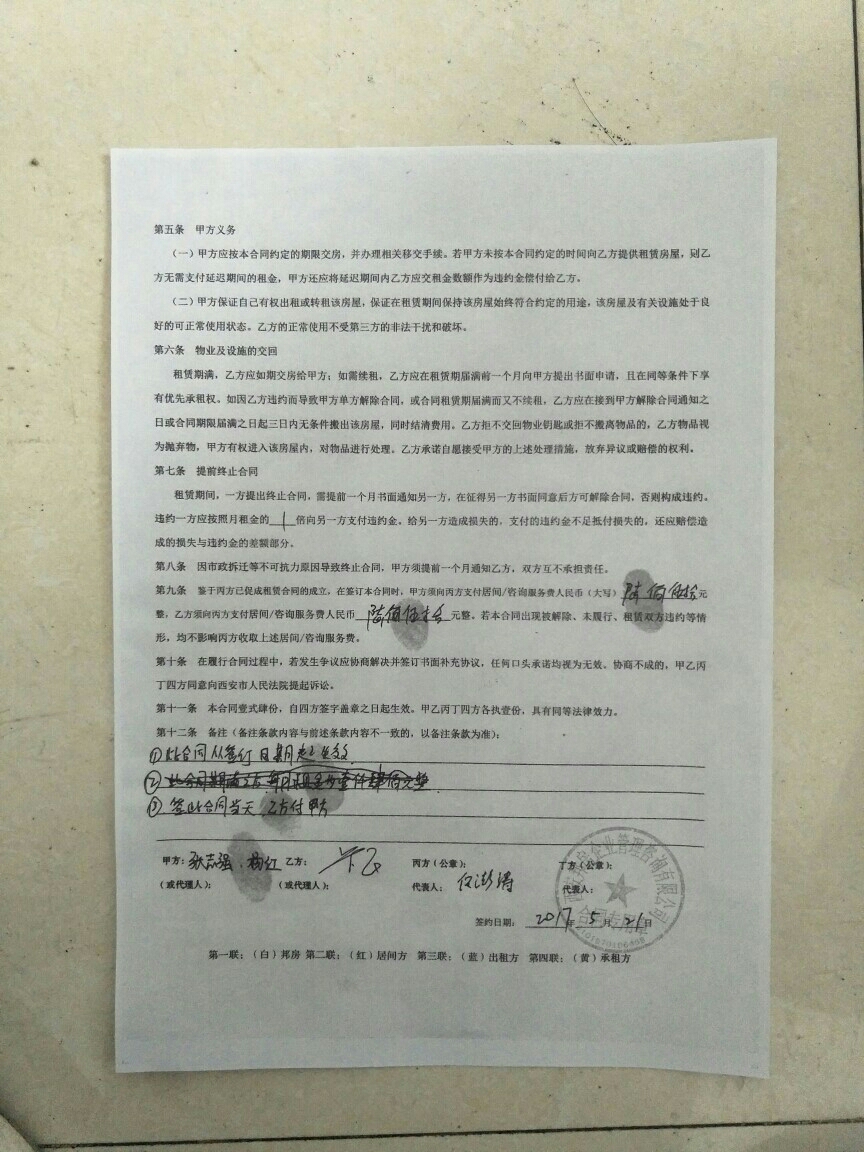 第五条 甲方义务
（一）甲方应按本合同约定的期限交房，并办理相关移交手续。若甲方未按本合同约定的时间向乙方提供租赁房屋，则乙
方无需支付延迟期间的租金，甲方还应将延迟期间内乙方应交租金数额作为违约金偿付给乙方。
（二）甲方保证自己有权出租或转租该房屋，保证在租赁期间保持该房屋始终符合约定的用途，该房屋及有关设施处于良
好的可正常使用状态。乙方的正常使用不受第三方的非法干扰和破坏。
第六条 物业及设施的交回
租赁期满，乙方应如期交房给甲方；如需续租，乙方应在租赁期届满前一个月向甲方提出书面申请，且在同等条件下享
有优先承租权。如因乙方违约而导致甲方单方解除合同，或合同租赁期届满而又不续租，乙方应在接到甲方解除合同通知之
日或合同期限届满之日起三日内无条件搬出该房屋，同时结清费用。乙方拒不交回物业钥匙或拒不搬离物品的，乙方物品视
为抛弃物，甲方有权进入该房屋内，对物品进行处理。乙方承诺自愿接受甲方的上述处理措施，放弃异议或赔偿的权利。
第七条 提前终止合同
租赁期间，一方提出终止合同，需提前一个月书面通知另一方，在征得另一方书面同意后方可解除合同，否则构成违约。
违约一方应按照月租金的 1 倍向另一方支付违约金。给另一方造成损失的，支付的违约金不足抵付损失的，还应赔偿造
成的损失与违约金的差额部分。
第八条 因市政拆迁等不可抗力原因导致终止合同，甲方须提前一个月通知乙方，双方互不承担责任。
第九条 鉴于丙方已促成租赁合同的成立，在签订本合同时，甲方须向丙方支付居间/咨询服务费人民币（大写）陆佰伍拾元
整，乙方须向丙方支付居间/咨询服务费人民币 陆佰伍拾 元整。若本合同出现被解除、未履行、租赁双方违约等情
形，均不影响丙方收取上述居间/咨询服务费。
第十条 在履行合同过程中，若发生争议应协商解决并签订书面补充协议，任何口头承诺均视为无效。协商不成的，甲乙丙
丁四方同意向西安市人民法院提起诉讼。
第十一条 本合同壹式肆份，自四方签字盖章之日起生效。甲乙丙丁四方各执壹份，具有同等法律效力。
第十二条 备注（备注条款内容与前述条款内容不一致的，以备注条款为准）：
①此合同从签订日期起生效
②
③签此合同当天，乙方付甲方
甲方：张志强、杨红 乙方： 丙方（公章）： 丁方（公章）：
（或代理人）： （或代理人）： 代表人： 代表人：
企业管理咨询有限公司
合同专用章
签约日期： 2017 年 5 月 21 日
第一联：（白）邦房 第二联：（红）居间方 第三联：（蓝）出租方 第四联：（黄）承租方